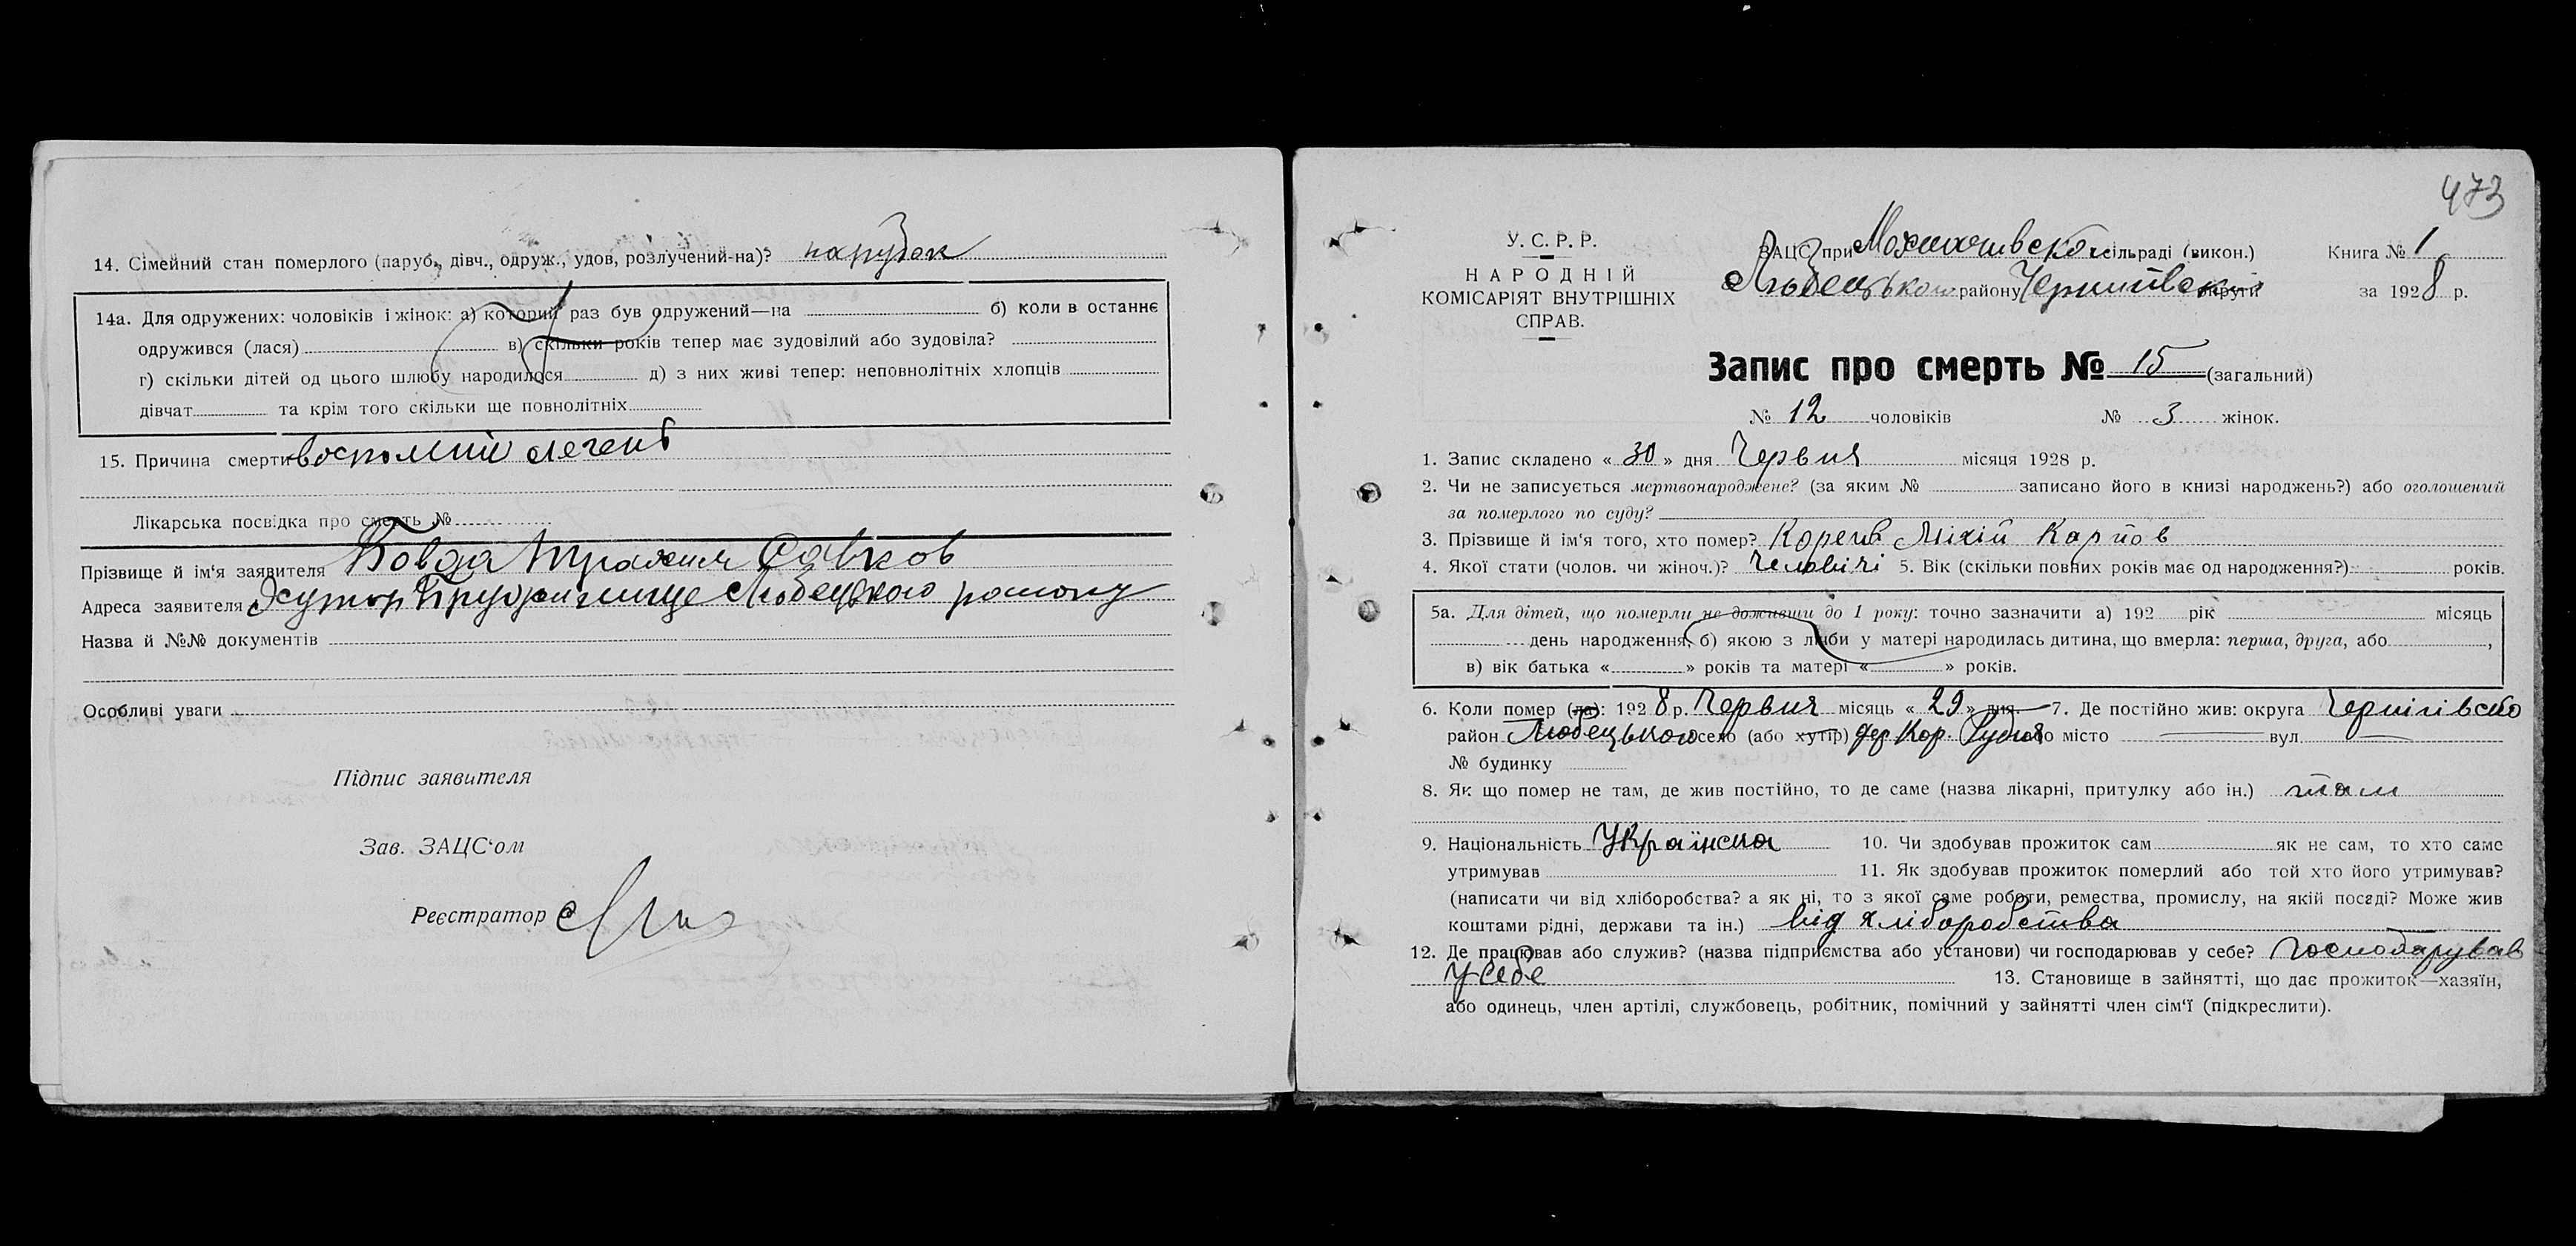 14. Сімейний стан померлого (паруб., дівч., одруж., удов, розлучений-на)? парубок
14а. Для одружених: чоловіків і жінок: а) который раз був одружений—на б) коли в останнє
одружився (лася) в) скільки років тепер має зудовілий або зудовіла?
г) скільки дітей од цього шлюбу народилося д) з них живі тепер: неповнолітніх хлопців
дівчат та крім того скільки ще повнолітніх
15. Причина смерти легень
Лікарська посвідка про смерть №
Прізвище й ім'я заявителя Бовда Трахим Савков
Адреса заявителя Хутор Любецького району
Назва й №№ документів
Особливі уваги
Підпис заявителя
Зав. ЗАЦС'ом
Реєстратор
473
У. С. Р. Р.
НАРОДНІЙ
КОМІСАРІЯТ ВНУТРІШНІХ
СПРАВ.
ЗАЦС при сільраді (викон.) Книга № 1
Любецького району Чернигівской округи за 1928 р.
Запис про смерть № 15 (загальний)
№ 12 чоловіків № 3 жінок.
1. Запис складено « 30 » дня Червня місяця 1928 р.
2. Чи не записується мертвонароджене? (за яким № записано його в книзі народжень?) або оголошений
за померлого по суду?
3. Прізвище й ім'я того, хто помер? Корень Міхій Карпов
4. Якої стати (чолов. чи жіноч.)? Человічі 5. Вік (скільки повних років має од народження?) років.
5а. Для дітей, що померли не доживши до 1 року: точно зазначити а) 192 рік місяць
день народження, б) якою з ліжби у матері народилась дитина, що вмерла: перша, друга, або ,
в) вік батька « » років та матері « » років.
6. Коли помер (ла): 1928 р. Червня місяць « 29 » дня. 7. Де постійно жив: округа Чернігівсько
район Любецького село (або хутір) дер Кор. Рудня або місто вул.
№ будинку
8. Як що помер не там, де жив постійно, то де саме (назва лікарні, притулку або ін.) там
9. Національність Українська 10. Чи здобував прожиток сам як не сам, то хто саме
утримував 11. Як здобував прожиток померлий або той хто його утримував?
(написати чи від хліборобства? а як ні, то з якої саме роботи, ремества, промислу, на якій посаді? Може жив
коштами рідні, держави та ін.) від хліборобства
12. Де працював або служив? (назва підприємства або установи) чи господарював у себе? Господарував
у себе 13. Становище в зайнятті, що дає прожиток—хазяїн,
або одинець, член артілі, службовець, робітник, помічний у зайнятті член сім'ї (підкреслити).